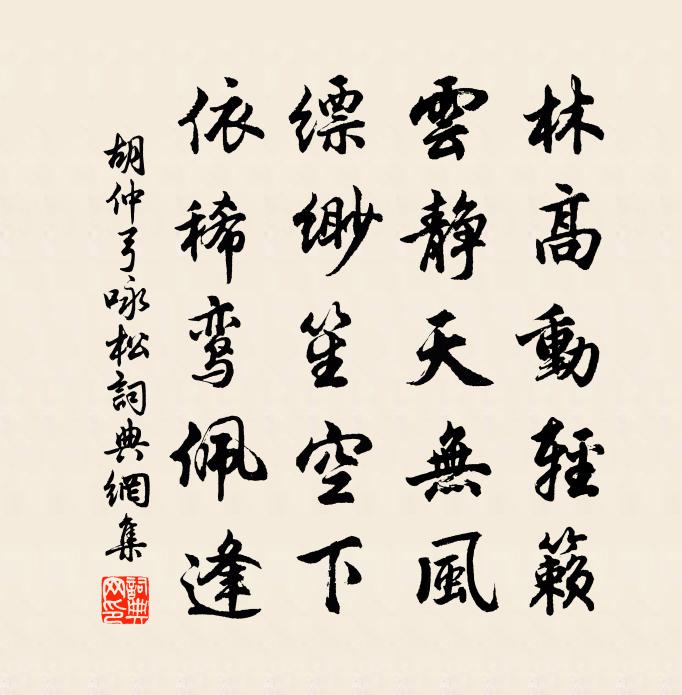 林高動輕籟
雲靜天無風
缥缈笙空下
依稀鸾佩逢
胡仲弓咏松詞典網集
詞典網印